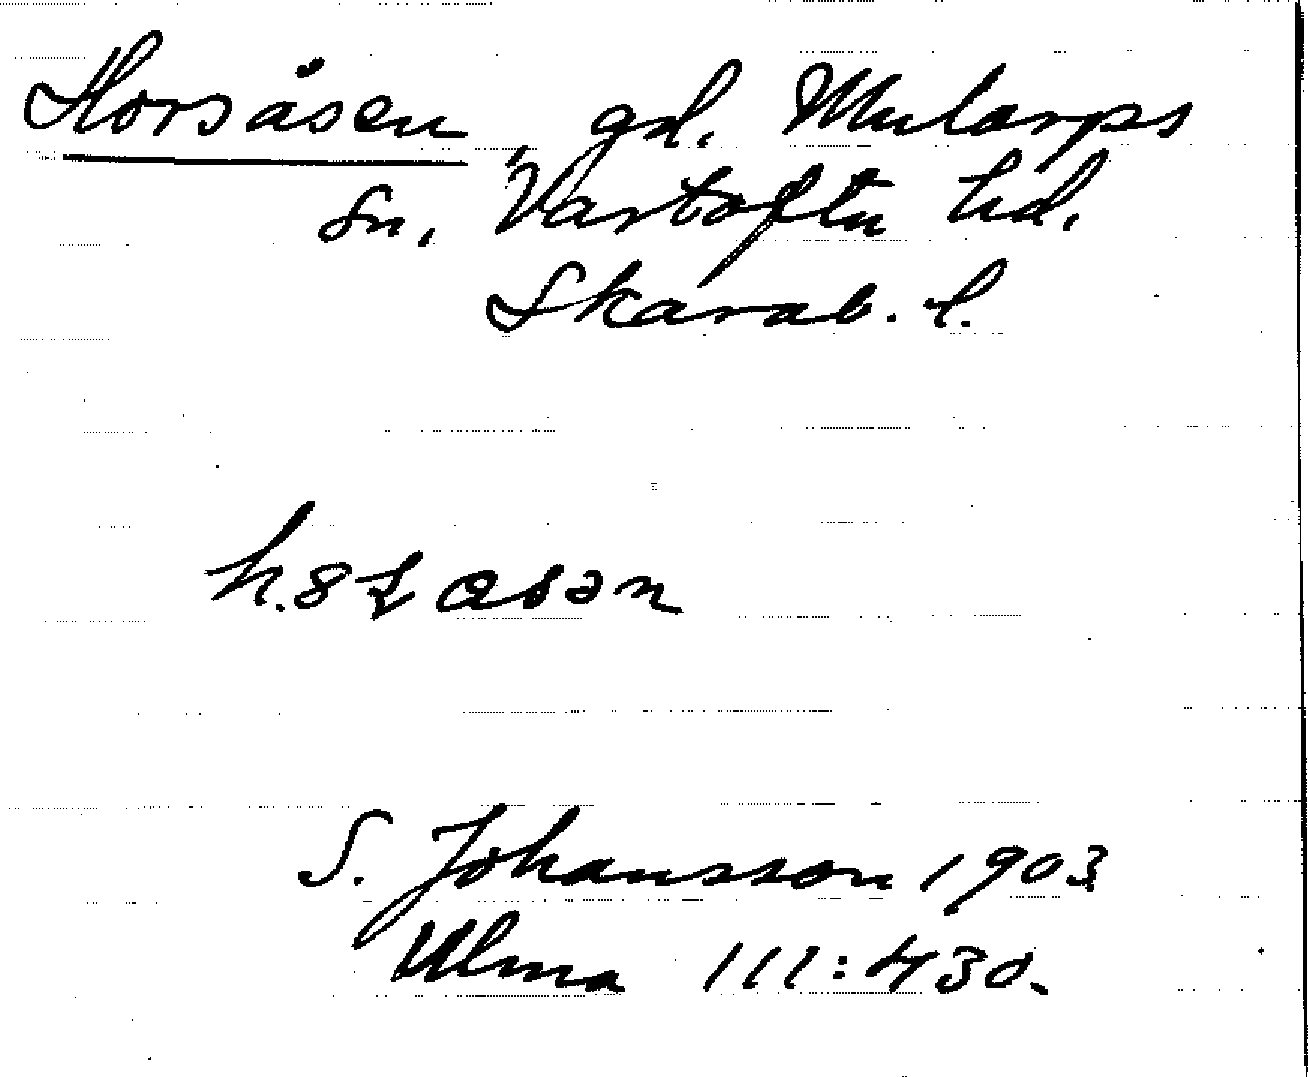 Horsåsen, gd. Mularps
sn, Vartofta hd.
Skarab. l.
S. Johansson 1903
Ulma 111:430.